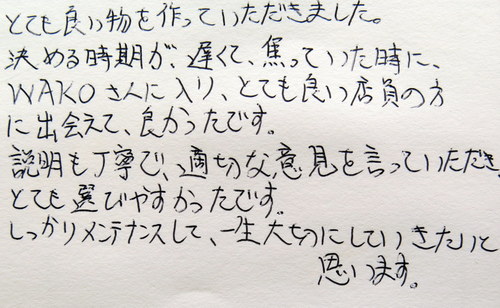 とても良い物を作っていただきました。
決める時期が、遅くて、焦っていた時に、
WAKOさんに入り、とても良い店員の方
に出会えて、良かったです。
説明も丁寧で、適切な意見を言っていただき、
とても選びやすかったです。
しっかりメンテナンスして、一生大切にしていきたいと
思います。